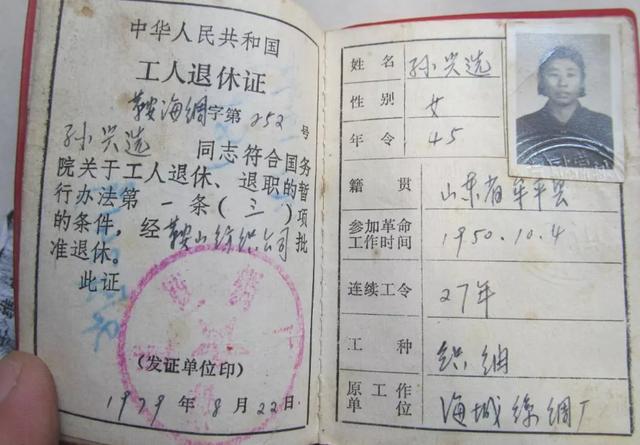 中华人民共和国
工人退休证
鞍海绸字第252号
孙兴选 同志符合国务
院关于工人退休、退职的暂
行办法第一条(三)项
的条件,经鞍山纺织公司批
准退休。
此证
(发证单位印)
1979年8月22日
姓名 孙兴选
性别 女
年令 45
籍贯 山东省牟平县
参加革命工作时间 1950.10.4
连续工令 27年
工种 织绸
原工作单位 海城丝绸厂